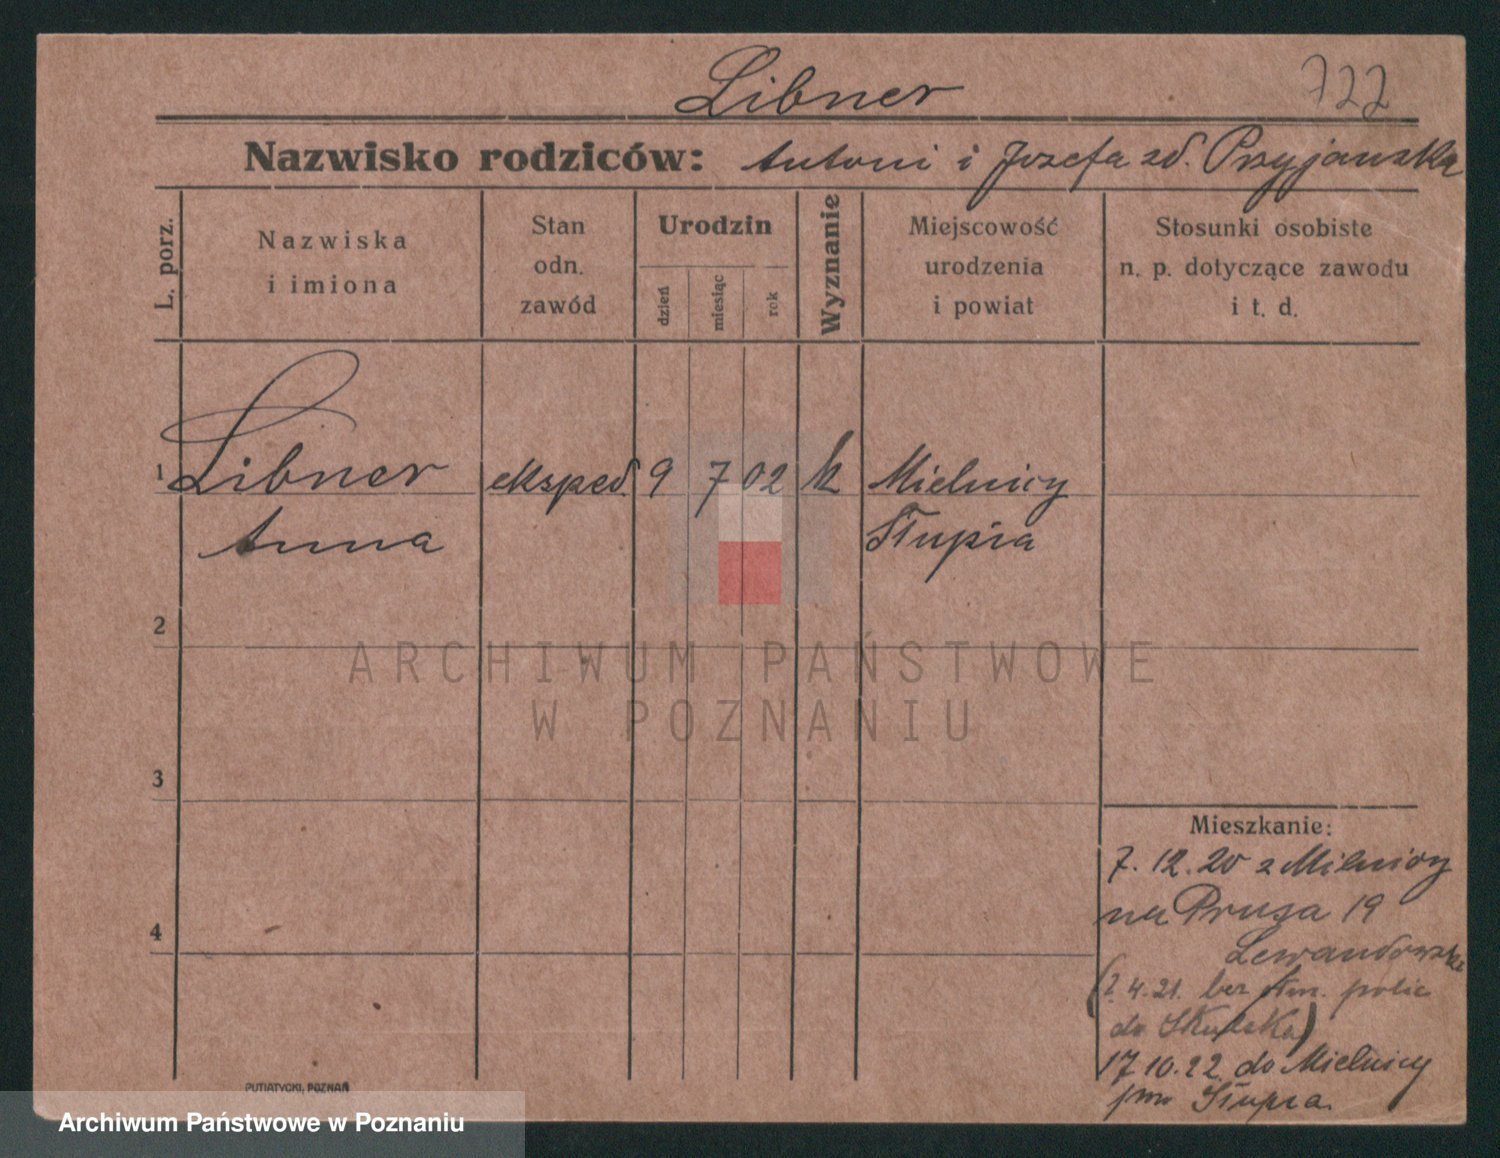 Libner
722
Nazwisko rodziców: Antoni i Józefa zd. Przyjawska
L. porz.
Nazwiska
i imiona
Stan
odn.
zawód
Urodzin
dzień
miesiąc
rok
Wyznanie
Miejscowość
urodzenia
i powiat
Stosunki osobiste
n. p. dotyczące zawodu
i t. d.
1 Libner eksped. 9 7 02 k Mielnicy
Anna Słupia
2
3
4
ARCHIWUM PAŃSTWOWE
W POZNANIU
Mieszkanie:
7.12.20 z Mielnicy
na Prusa 19
Lewandowska
4.21. bez polic
do
17.10.22 do Mielnicy
Słupia.
PUTIATYCKI, POZNAŃ
Archiwum Państwowe w Poznaniu